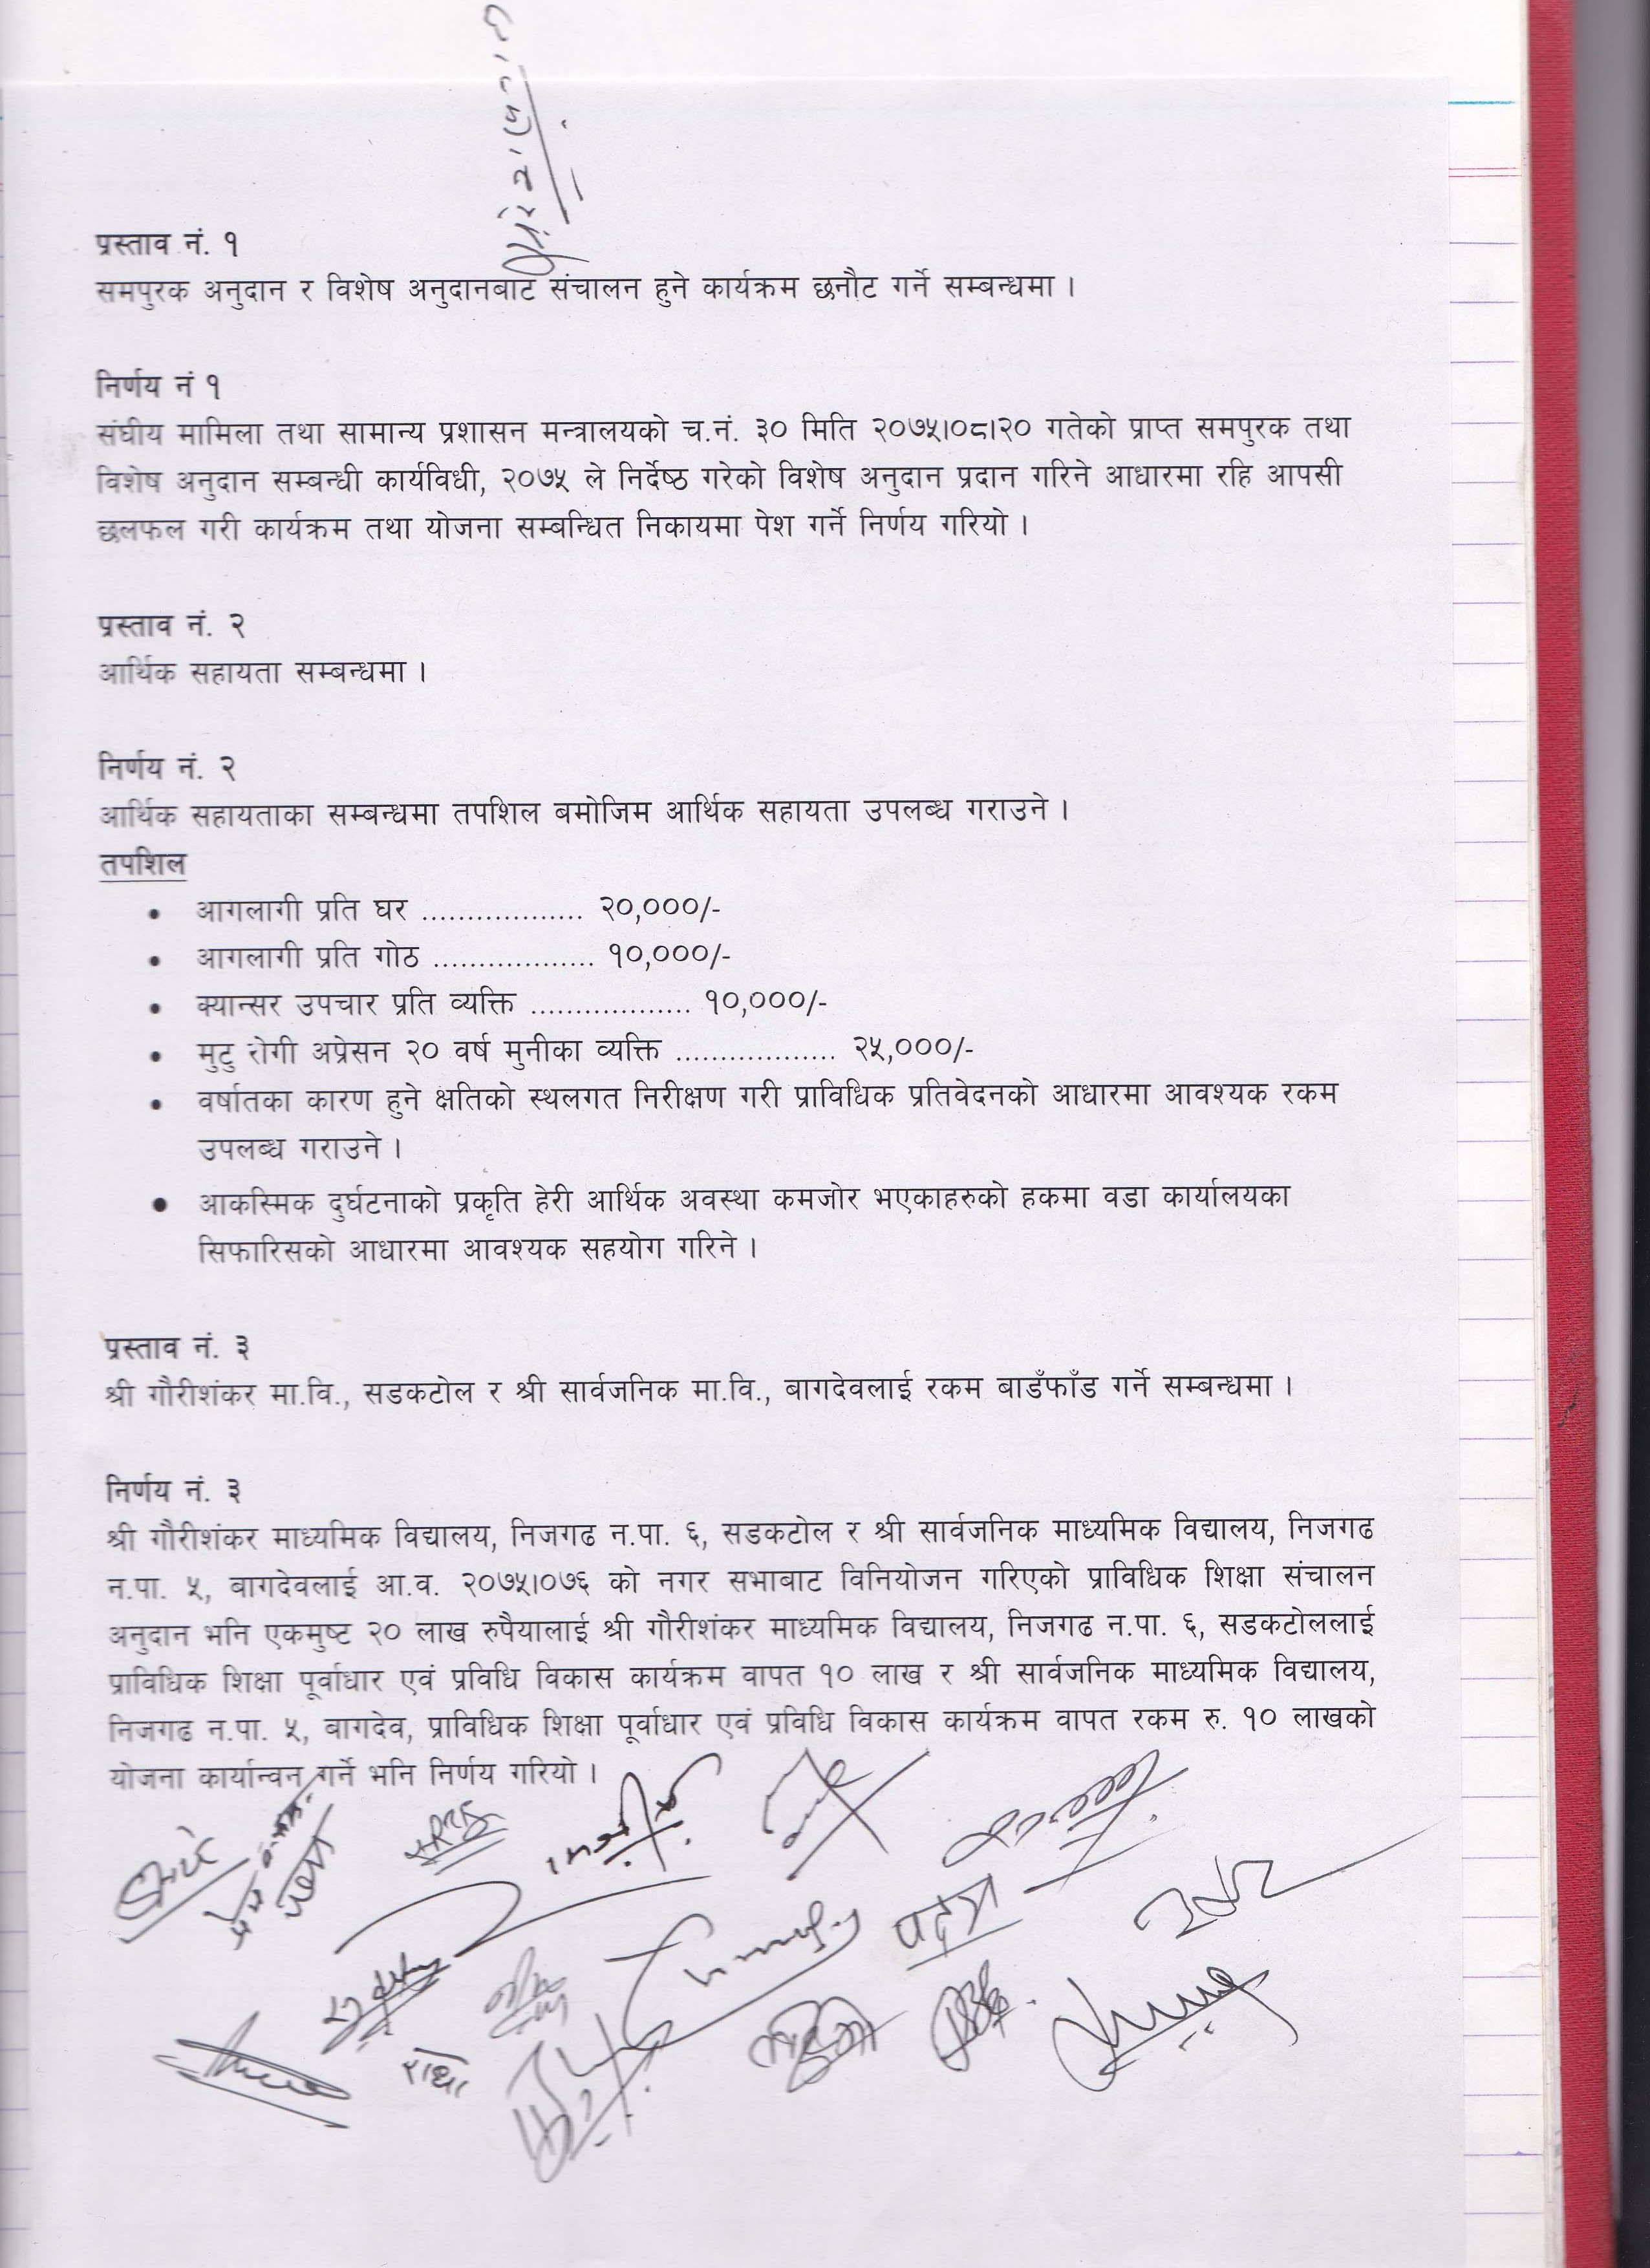 प्रस्ताव नं. १
समपुरक अनुदान र विशेष अनुदानबाट संचालन हुने कार्यक्रम छनौट गर्ने सम्बन्धमा ।
निर्णय नं १
संघीय मामिला तथा सामान्य प्रशासन मन्त्रालयको च.नं. ३० मिति २०७५।०८।२० गतेको प्राप्त समपुरक तथा
विशेष अनुदान सम्बन्धी कार्यविधी, २०७५ ले निर्देष्ठ गरेको विशेष अनुदान प्रदान गरिने आधारमा रहि आपसी
छलफल गरी कार्यक्रम तथा योजना सम्बन्धित निकायमा पेश गर्ने निर्णय गरियो ।
प्रस्ताव नं. २
आर्थिक सहायता सम्बन्धमा ।
निर्णय नं. २
आर्थिक सहायताका सम्बन्धमा तपशिल बमोजिम आर्थिक सहायता उपलब्ध गराउने ।
तपशिल
• आगलागी प्रति घर .................. २०,०००/-
• आगलागी प्रति गोठ .................. १०,०००/-
• क्यान्सर उपचार प्रति व्यक्ति .................. १०,०००/-
• मुटु रोगी अप्रेसन २० वर्ष मुनीका व्यक्ति .................. २५,०००/-
• वर्षातका कारण हुने क्षतिको स्थलगत निरीक्षण गरी प्राविधिक प्रतिवेदनको आधारमा आवश्यक रकम
उपलब्ध गराउने ।
• आकस्मिक दुर्घटनाको प्रकृति हेरी आर्थिक अवस्था कमजोर भएकाहरुको हकमा वडा कार्यालयका
सिफारिसको आधारमा आवश्यक सहयोग गरिने ।
प्रस्ताव नं. ३
श्री गौरीशंकर मा.वि., सडकटोल र श्री सार्वजनिक मा.वि., बागदेवलाई रकम बाडँफाँड गर्ने सम्बन्धमा ।
निर्णय नं. ३
श्री गौरीशंकर माध्यमिक विद्यालय, निजगढ न.पा. ६, सडकटोल र श्री सार्वजनिक माध्यमिक विद्यालय, निजगढ
न.पा. ५, बागदेवलाई आ.व. २०७५।०७६ को नगर सभाबाट विनियोजन गरिएको प्राविधिक शिक्षा संचालन
अनुदान भनि एकमुष्ट २० लाख रुपैयालाई श्री गौरीशंकर माध्यमिक विद्यालय, निजगढ न.पा. ६, सडकटोललाई
प्राविधिक शिक्षा पूर्वाधार एवं प्रविधि विकास कार्यक्रम वापत १० लाख र श्री सार्वजनिक माध्यमिक विद्यालय,
निजगढ न.पा. ५, बागदेव, प्राविधिक शिक्षा पूर्वाधार एवं प्रविधि विकास कार्यक्रम वापत रकम रु. १० लाखको
योजना कार्यान्वन गर्ने भनि निर्णय गरियो ।
राधा